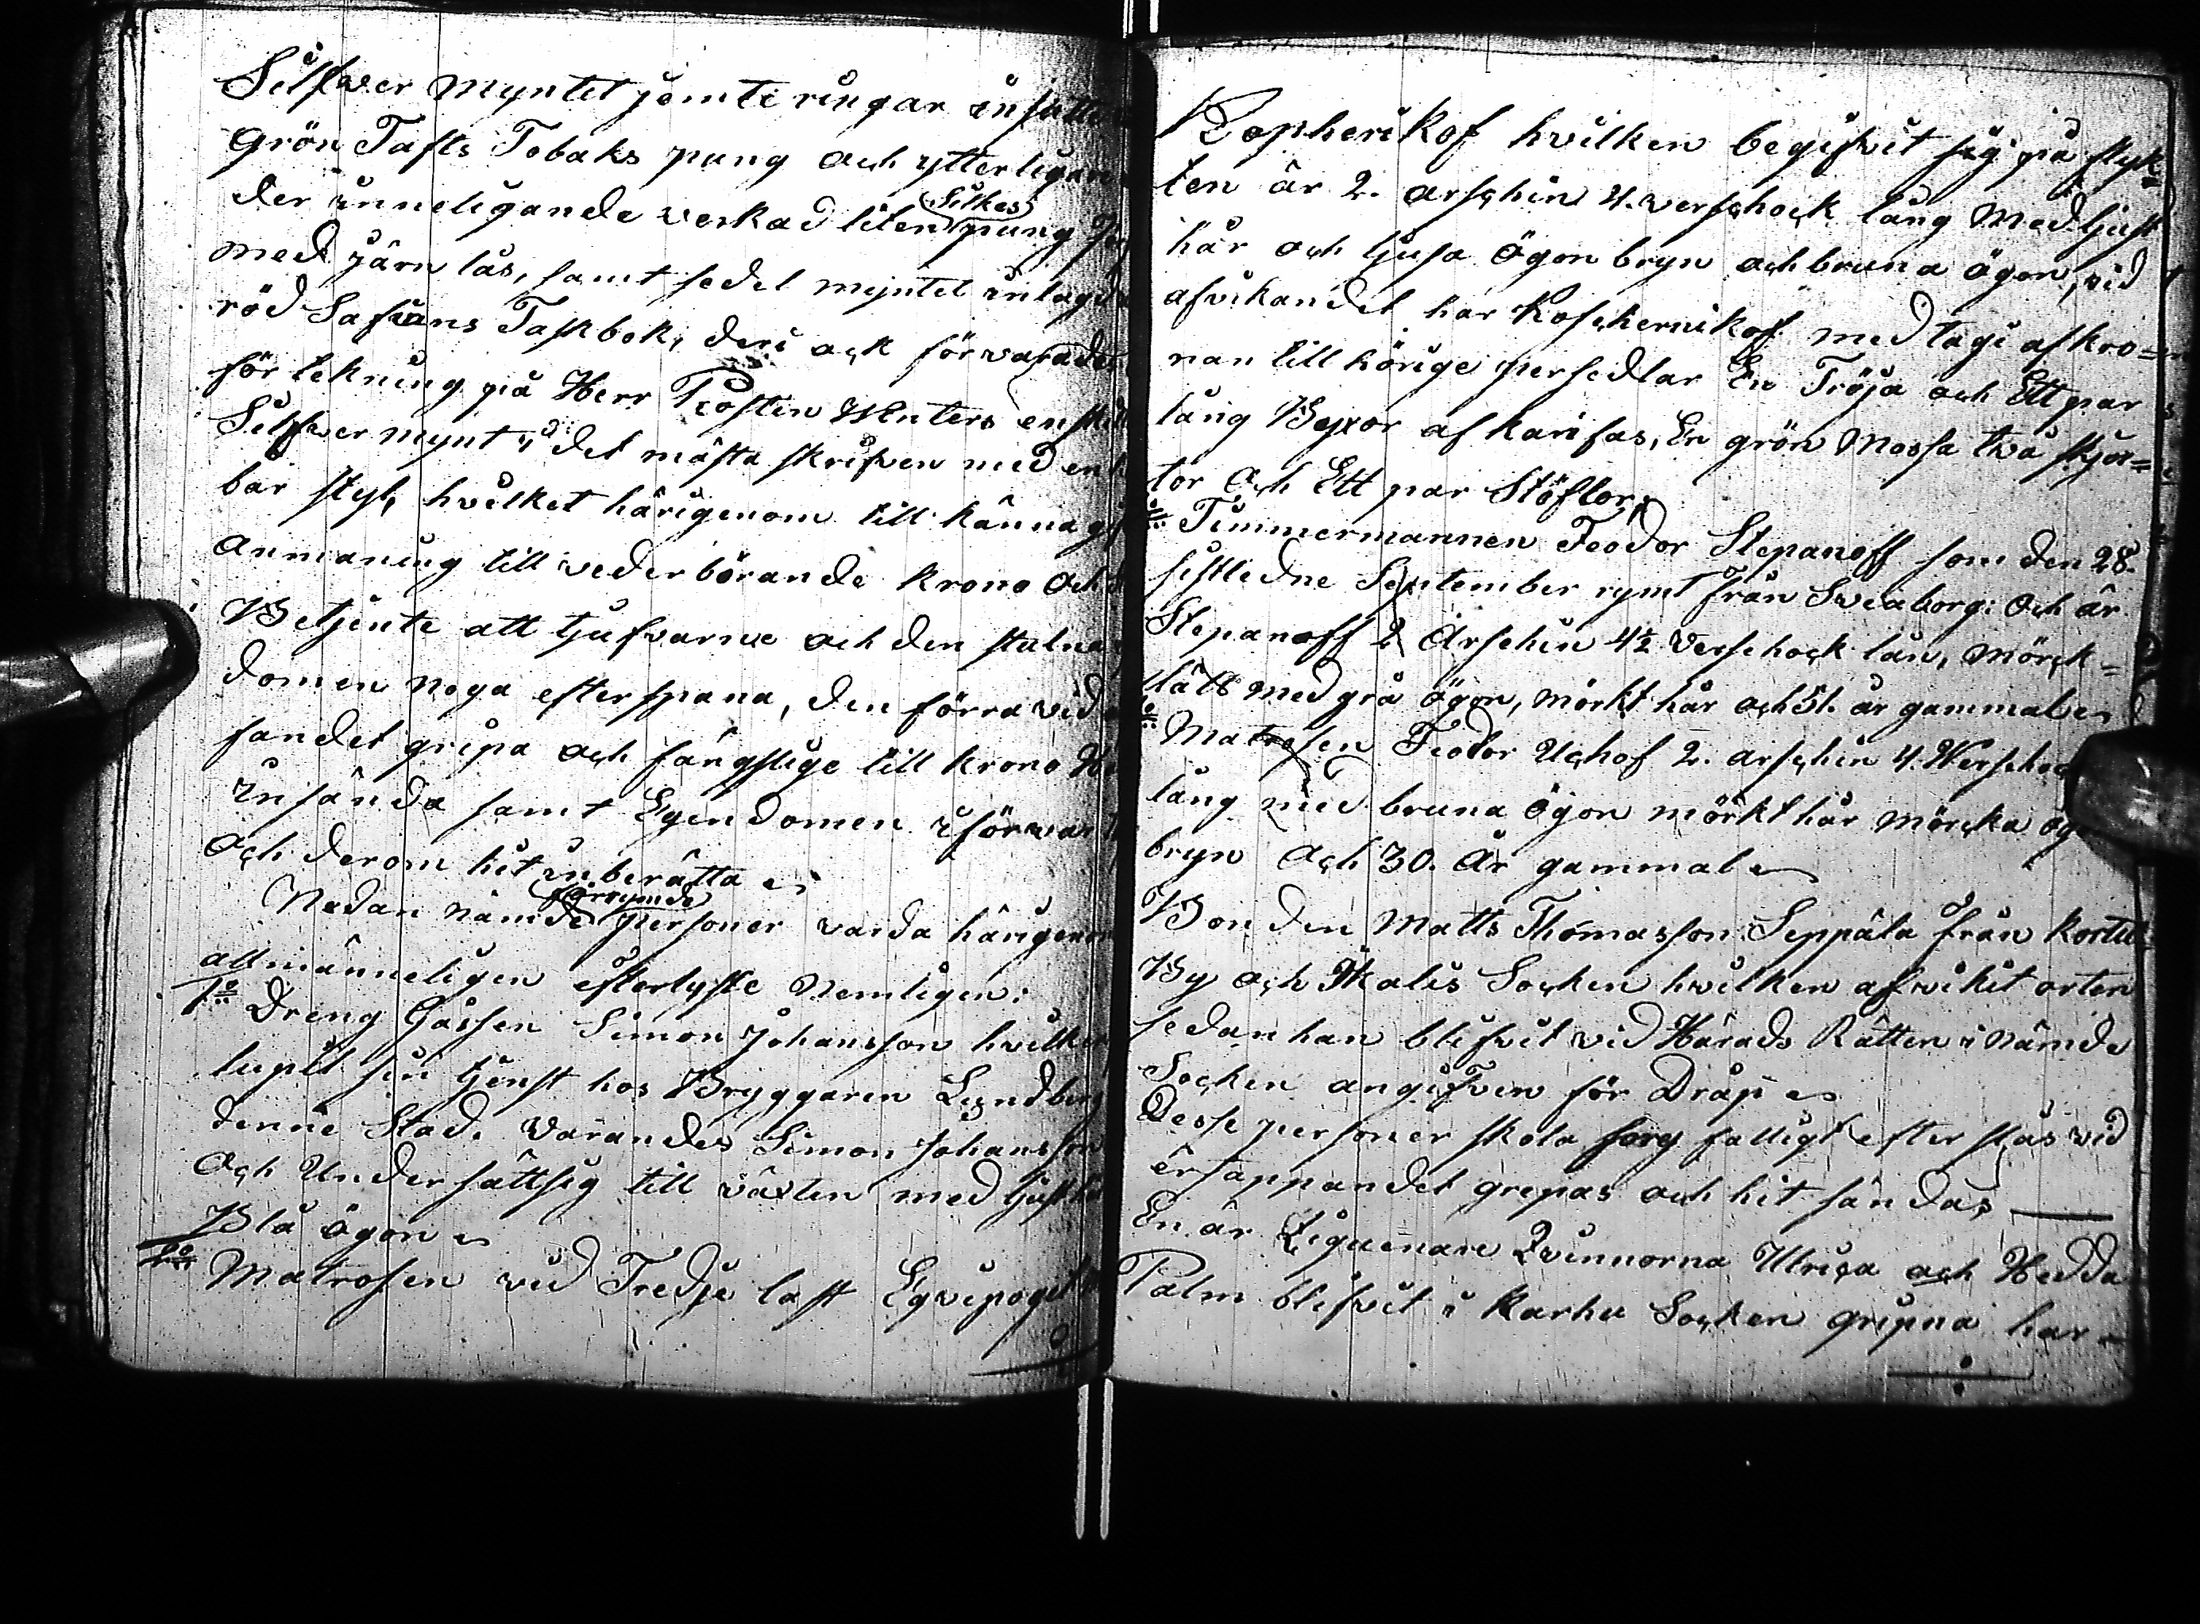 Silfwer Myntet jemte ringar insatte
Grön Tafts Tobaks pung och ytterligare
der inneligande verkad liten Silkes pung
med järn lås, samt sedel myntet inlagdt
röd Safians Taskbok, deri ock förvarades
för tekning på Herr
Silfwer mynt, det mästa skrifven med en
bar styl, hvilket härigenom till känna
Anmaning till vederbörande krono Och
Betjente att tjufvarne och den stulna
domen noga efterspana, den förra vid
sandet gripa och fängslige till krono
Insända samt Egendomen i förvar
Och derom hit inberätta
Nedan nämde förrymde personer varda härigenom
allmänneligen efterlyste Nemligen:
1o Dreng Gossen Simon Johansson hvilken
lupit sin tjenst hos Bryggaren Lundberg
denne Stad. Varandes Simon Johansson
Och Undersättsig till växten med ljust
Blå ögon
2o Matrosen vid Tredje last Eqvipaget
hvilken begifvit sig på flyk=
ten är 2. arschin 4. verschock lång Med ljust
hår och ljusa Ögon bryn och bruna ögon, vid
afvikandet har Koschernikof med tagi af kro=
nan tillhörige persedlar En Tröja och Ett par
lång Byxor af karifas, En grön Mossa två skjor=
tor Och Ett par Stöflor,
Timmermannen Feodor Stepanoff som den 28.
sistledne September rymt från Sveaborg: Och är
Stepanoff 2 Arschin 4½ Verschock lån, mörck=
lätt med grå ögon, mörkt hår och 31. år gammal
Matrosen Feodor Uchof 2. arschin 4. Werschock
lång med bruna Ögon mörkt hår mörcka ögon
bryn Och 30. År gammal
Bonden Matts Thomasson Seppälä från
By och Ikalis Socken hvilken afvikit orten
sedan han blifvit vid Härads Rätten i nämde
Socken angifven för Dråp
Desse personer skola sorgfälligt efterslås vid
ertappandet gripas och hit sändas
En är Ziguenare Qvinnorna Ulrica och Hedda
Palm blifvit i Karhu Socken gripna har